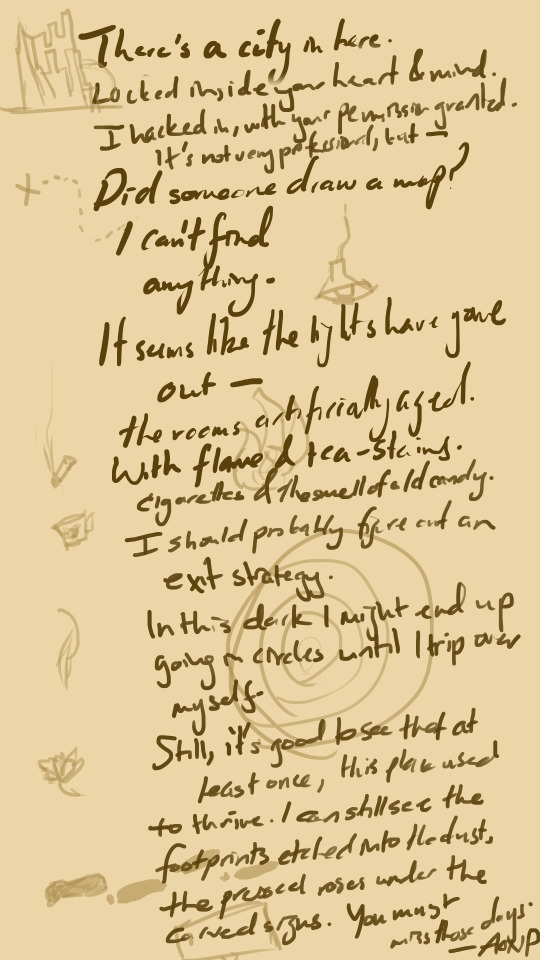 There's a city in here.
Locked inside your heart & mind.
I hacked in, with your permission granted.
It's not very professional, but —
Did someone draw a map?
I can't find
anything.
It seems like the lights have gone
out —
the rooms artificially aged.
With flame & tea-stains.
Cigarettes & the smell of old candy.
I should probably figure out an
exit strategy.
In this dark I might end up
going in circles until I trip over
myself.
Still, it's good to see that at
least once, this place used
to thrive. I can still see the
footprints etched into the dust,
the pressed roses under the
carved signs. You must
miss those days.